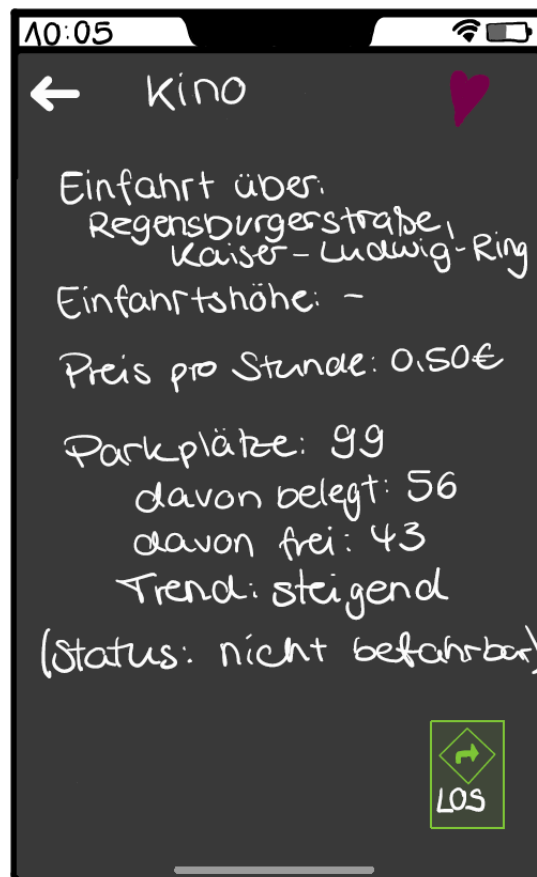 10:05
Kino
Einfahrt über:
Regensburgerstraße,
Kaiser-Ludwig-Ring
Einfahrtshöhe: -
Preis pro Stunde: 0,50€
Parkplätze: 99
davon belegt: 56
davon frei: 43
Trend: steigend
(Status: nicht befahrbar)
LOS